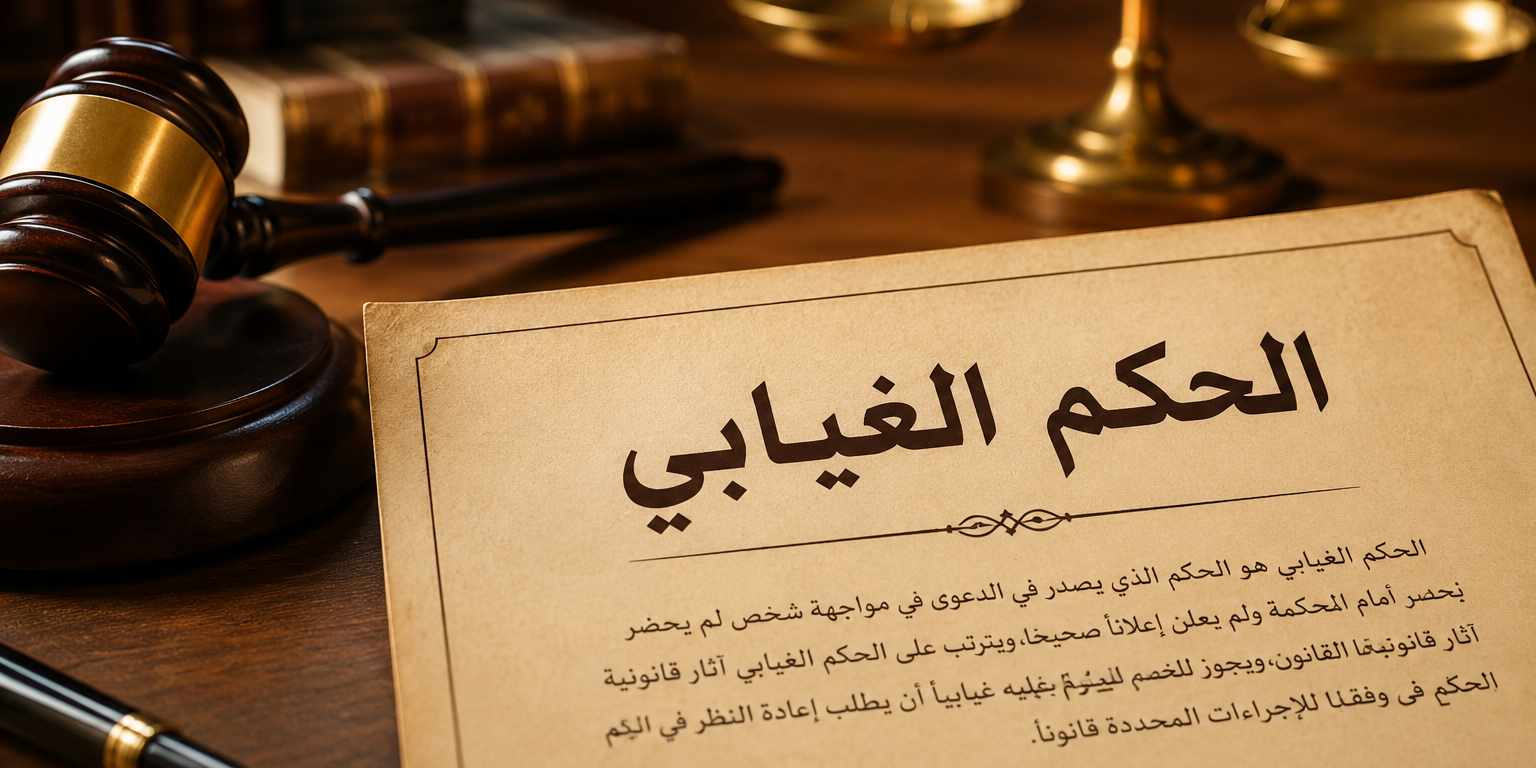 الحكم الغيابي
الحكم الغيابي هو الحكم الذي يصدر في الدعوى في مواجهة شخص لم يحضر
أمام المحكمة ولم يعلن إعلاناً صحيخا، ويترتب على الحكم الغيابي آثار قانونية
آثار القانون، ويجوز للخصم غيابياً أن يطلب إعادة النظر في
الحكم في للإجراءات المحددة قانوناً.